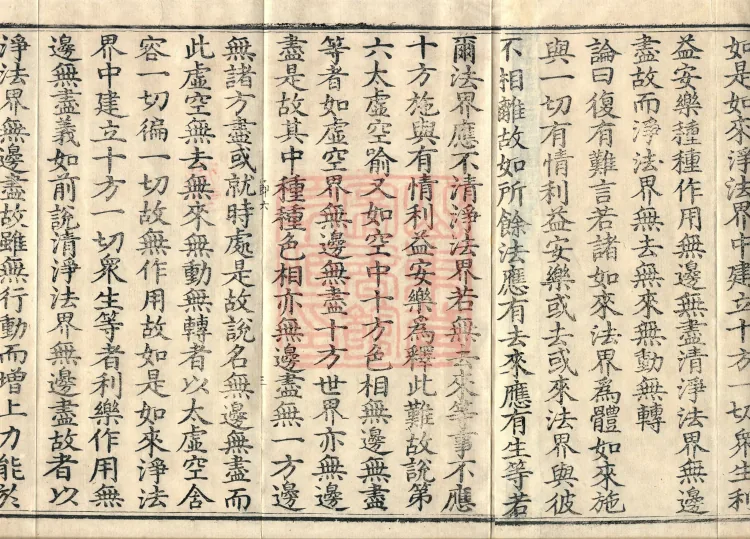 如是如來淨法界中建立十方一切衆生利
益安樂種種作用無邊無盡清淨法界無邊
盡故而淨法界無去無來無動無轉
論曰復有難言若諸如來法界爲體如來施
與一切有情利益安樂或去或來法界與彼
不相離故如所餘法應有去來應有生等若
爾法界應不清淨法界若無去來等事不應
十方施與有情利益安樂爲釋此難故說第
六太虛空喻又如空中十方色相無邊無盡
等者如虛空界無邊無盡十方世界亦無邊
盡是故其中種種色相亦無邊盡無一方邊
無諸方盡或就時處是故說名無邊無盡而
此虛空無去無來無動無轉者以太虛空含
容一切徧一切故無作用故如是如來淨法
界中建立十方一切衆生等者利樂作用無
邊無盡義如前說清淨法界無邊盡故者以
淨法界無邊盡故雖無行動而增上力能於